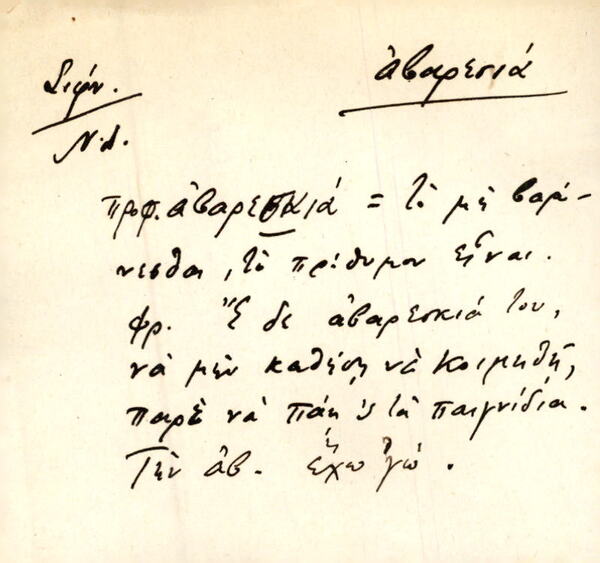 Σιφν.
ἀβαρεσιά
Ν.Δ.
προφ. ἀβαρεσκιά = τὸ μὴ βαρύ-
νεσθαι, τὸ πρόθυμον εἶναι.
φρ. Ἔ δε ἀβαρεσκιά του,
νὰ μὴν καθήσῃ νὰ κοιμηθῇ,
παρὲ νὰ πάῃ ᾿ς τὰ παιγνίδια.
Τὴν ἀβ. ἔχω ᾿γώ.